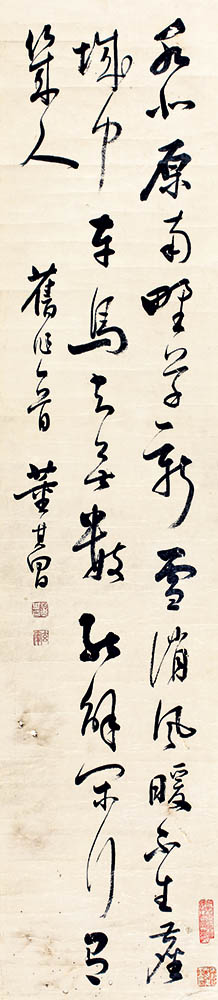 水北原南野草新雪消風暖不生塵
城中車馬應無數能解閑行有
幾人
董其昌